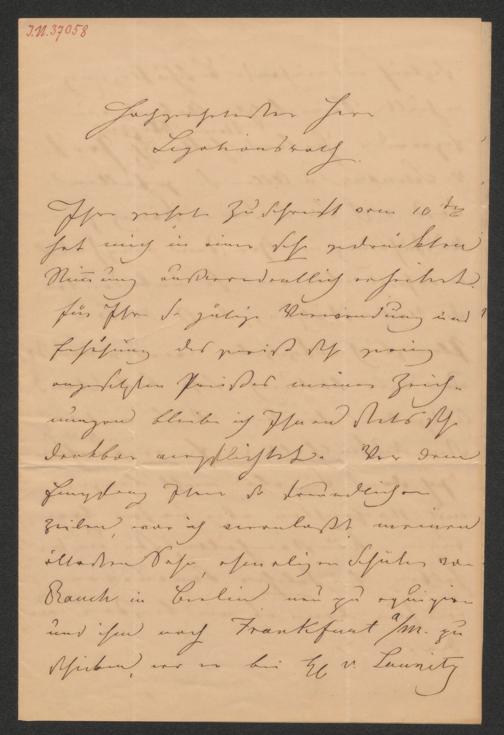 I.N. 37058
Hochgeehrtester Herr
Legationsrath.
Ihre geehrte Zuschrift vom 10 ten
hat mich in einer sehr gedrückten
Stimmung außerordentlich erheitert.
Für Ihre so gütige Verwendung und
Erhöhung des gewiß sehr
angesetzten Preises meiner Zeich-
nungen bleibe ich Ihnen stets sehr
dankbar verpflichtet. Vor dem
Empfang Ihrer so freundlichen
Zeilen, war ich veranlaßt, meinen
ältesten Sohn, ehemaligen Schüler von
Rauch in Berlin neu zu equipiren
und ihn nach Frankfurt a/M. zu
schicken, wo er bei H v. Launitz